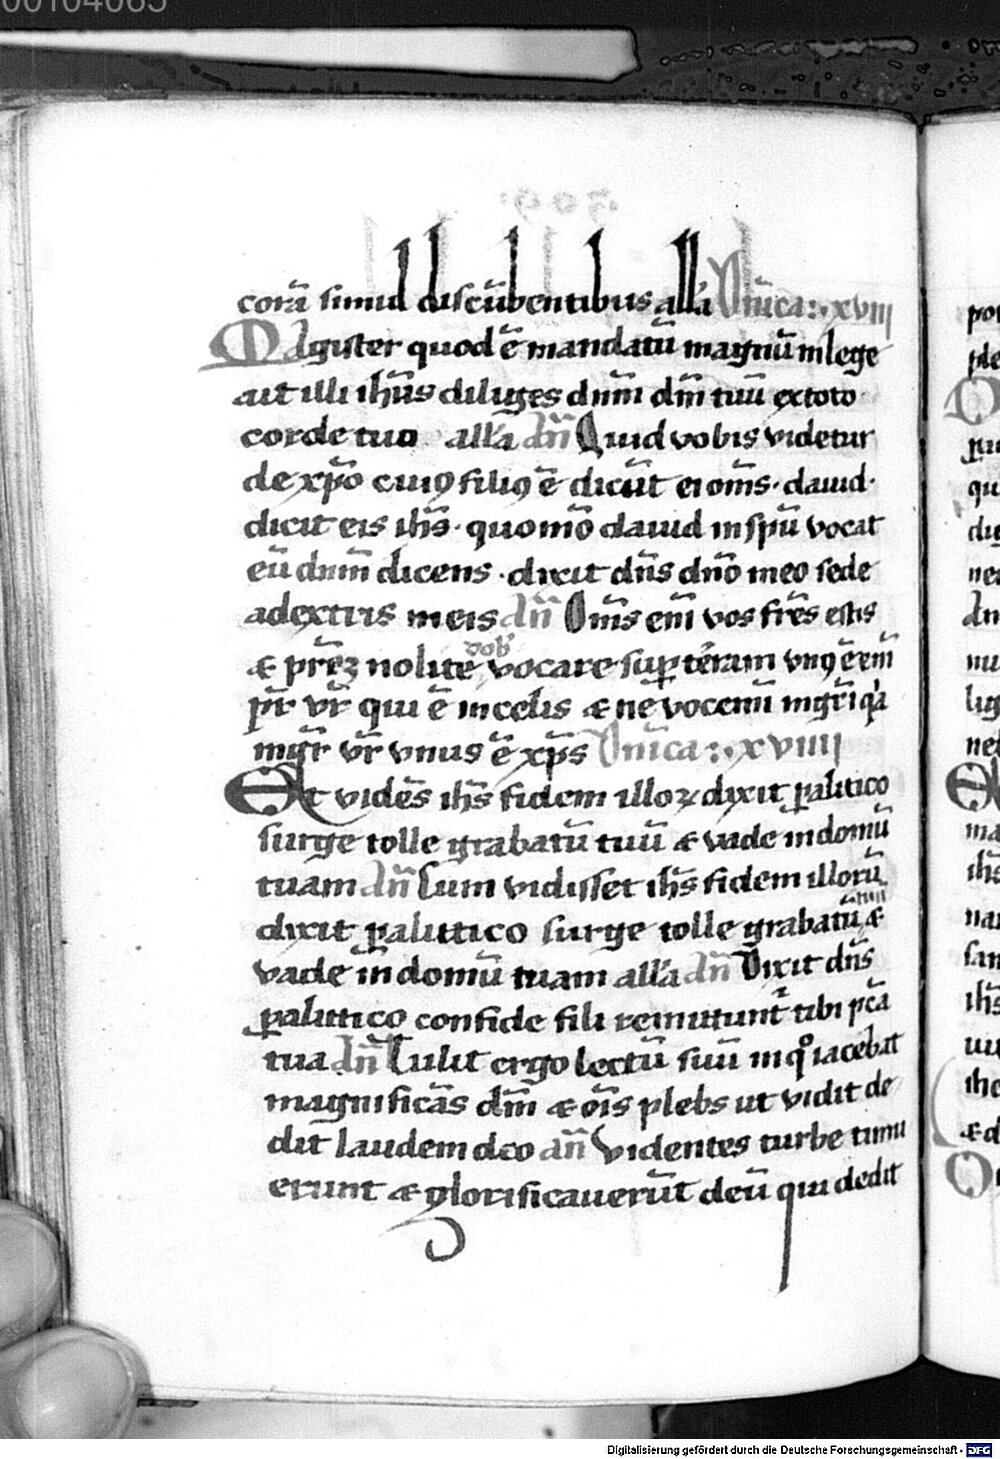 00104065
corā simul discūbentibus allā Dn̄ica :. xviii
Magister quod ē mandatū magnū in lege
ait illi ih̄us diliges dn̄m dm̄ tuū ex toto
corde tuo alla an̄ Quid vobis videtur
de xp̄o cuiꝰ filiꝰ ē dicūt ei om̄s · dauid ·
dicit eis ih̄s · quomo dauid in sp̄u vocat
eū dn̄m dicens · dixit dn̄s dn̄o meo sede
a dextris meis an̄ Om̄s em̄ vos fr̄es estis
& pr̄eꝫ nolite vocare suꝑ terram vnꝰ ē em̄
pr̄ vr̄ qui ē in celis & ne vocemī mgr̄i qa
mgr̄ vr̄ vnus ē xp̄s Dn̄ica :. xviiii
Et vidēs ih̄s fidem illoꝝ dixit ꝑalitico
surge tolle grabatū tuū & vade in domū
tuam an̄ Cum vidisset ih̄s fidem illorū
dixit ꝑalittico surge tolle grabatū &
vade in domū tuam alla an̄ Dixit dn̄s
ꝑalittico confide fili remittunt tibi pcā
tua an̄ Tulit ergo lectū suū in qo iacebat
magnificās dm̄ & ōis plebs ut vidit de
dit laudem deo an̄ Videntes turbe timu
erunt & glorificauerūt deū qui dedit
Digitalisierung gefördert durch die Deutsche Forschungsgemeinschaft - DFG